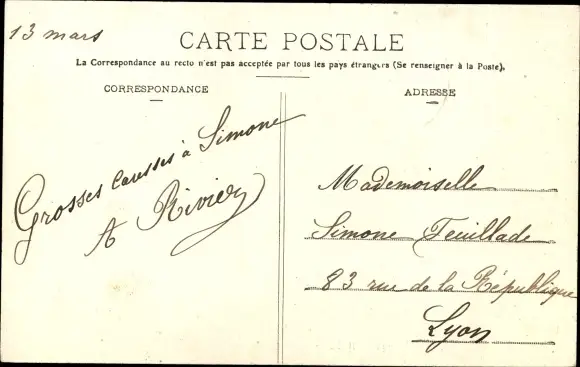 13 mars
CARTE POSTALE
La Correspondance au recto n'est pas acceptée par tous les pays étrangers (Se renseigner à la Poste).
CORRESPONDANCE
Grosses causses à Simone
A Rivier
ADRESSE
Mademoiselle
Simone Feuillade
83 rue de la République
Lyon